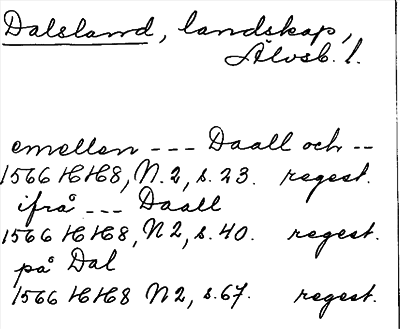 Dalsland, landskap,
Älvsb. l.
emellan --- Daall och --
1566 HH8, N. 2, s. 23. regest.
ifrå --- Daall
1566 HH8, N 2, s. 40. regest.
på Dal
1566 HH8 N 2, s. 67. regest.